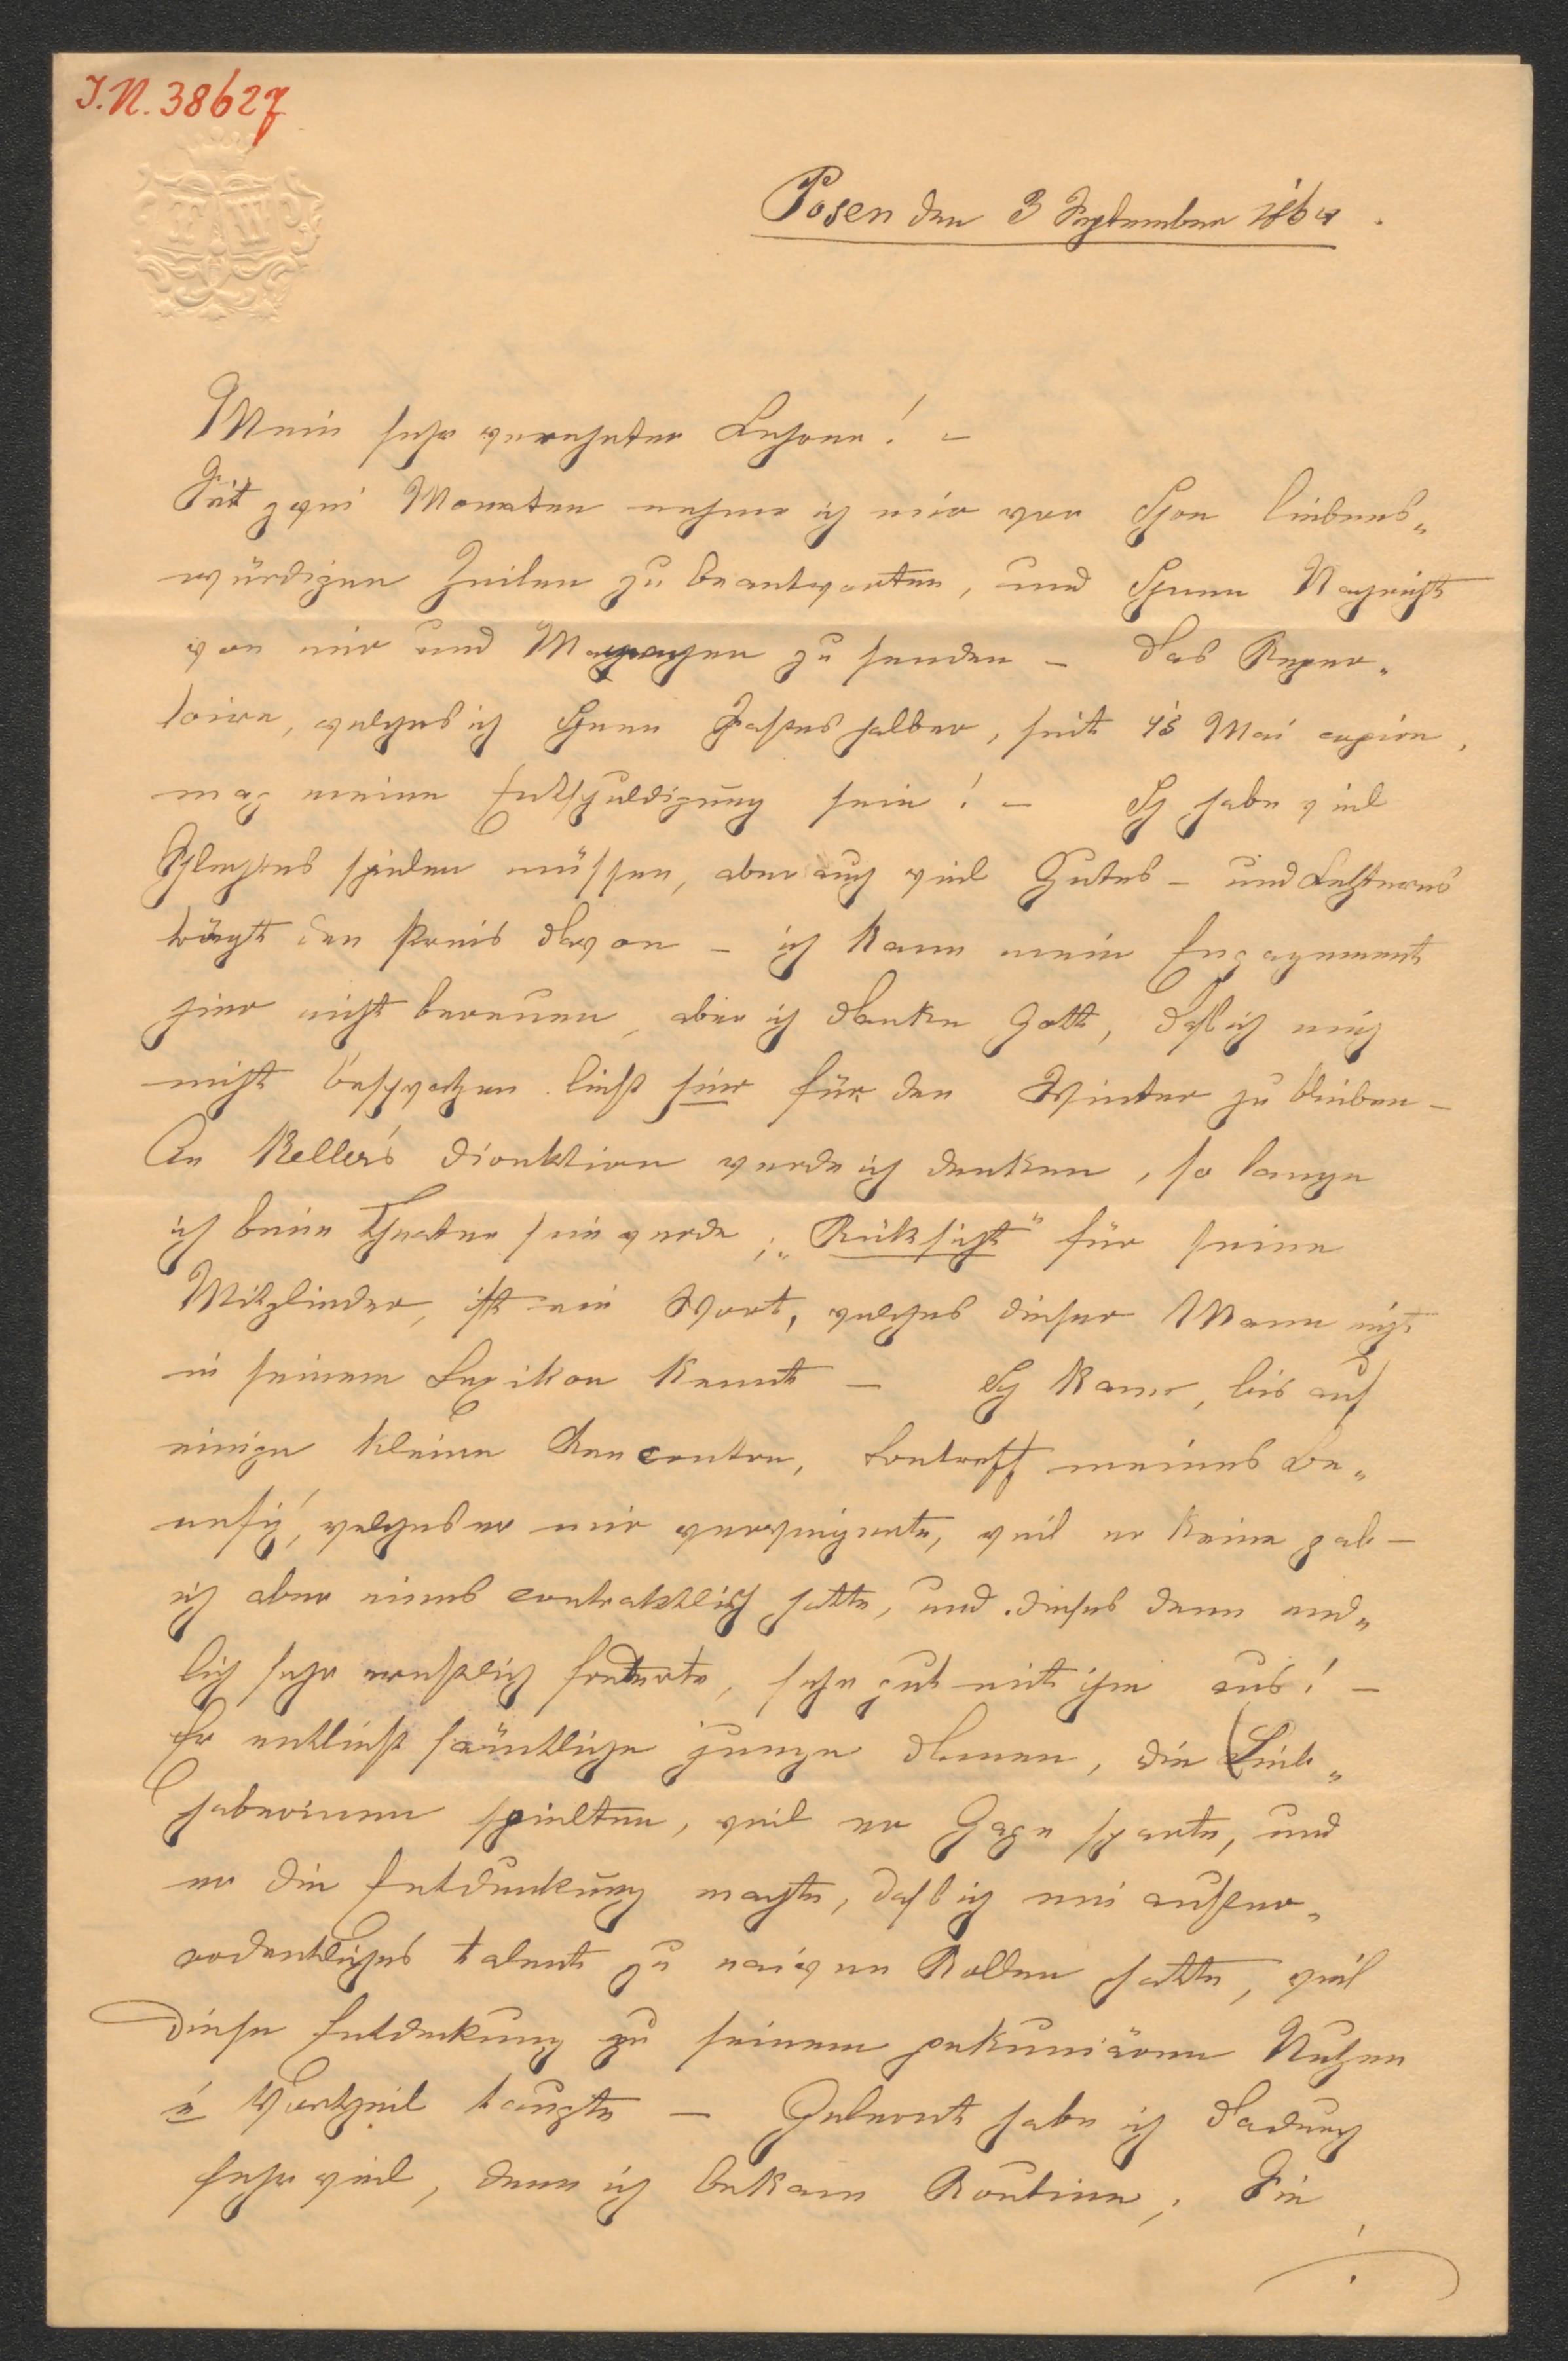 I.N. 38627
Posen den 3 September 1864.
Mein sehr verehrter Lehrer! –
Seit zwei Monaten nehme ich mir vor Ihre liebens„
würdigen Zeilen zu beantworten, und Ihnen Nachricht
von mir und zu senden – Das Reper„
toire, welches ich Ihnen halber, seit 15 Mai copire,
mag meine Entschuldigung sein! – Ich habe viel
Schlechtes spielen müssen, aber auch viel Gutes – und Letzteres
trägt den Preis davon – ich kann mein Engagement
hier nicht bereuen, aber ich danke Gott, daß ich mich
nicht beschwatzen ließ hier für den Winter zu bleiben –
An Keller's Direktion werde ich denken, so lange
ich beim Theater sein werde; „Rüksicht" für seine
Mitglieder, ist ein Wort, welches dieser Mann nicht
in seinem Lexikon kennt – Ich kam, bis auf
einige kleine Rencontre, betreff meines Be„
nefiz, welches er mir verweigerte, weil er keine gab –
ich aber eines contraktlich hatte, und dieses denn end„
lich sehr ernstlich forderte, sehr gut mit ihm aus! –
Er entließ sämtliche junge Damen, die Lieb„
haberinnen spielten, weil er Gage sparte, und
er die Entdeckung machte, daß ich ein außer„
ordentliches talent zu naiven Rollen hatte, weil
diese Entdekung zu seinem pekuniären Nutzen
& Vortheil taugte – Gelernt habe ich dadurch
sehr viel, denn ich bekam Routine; Die